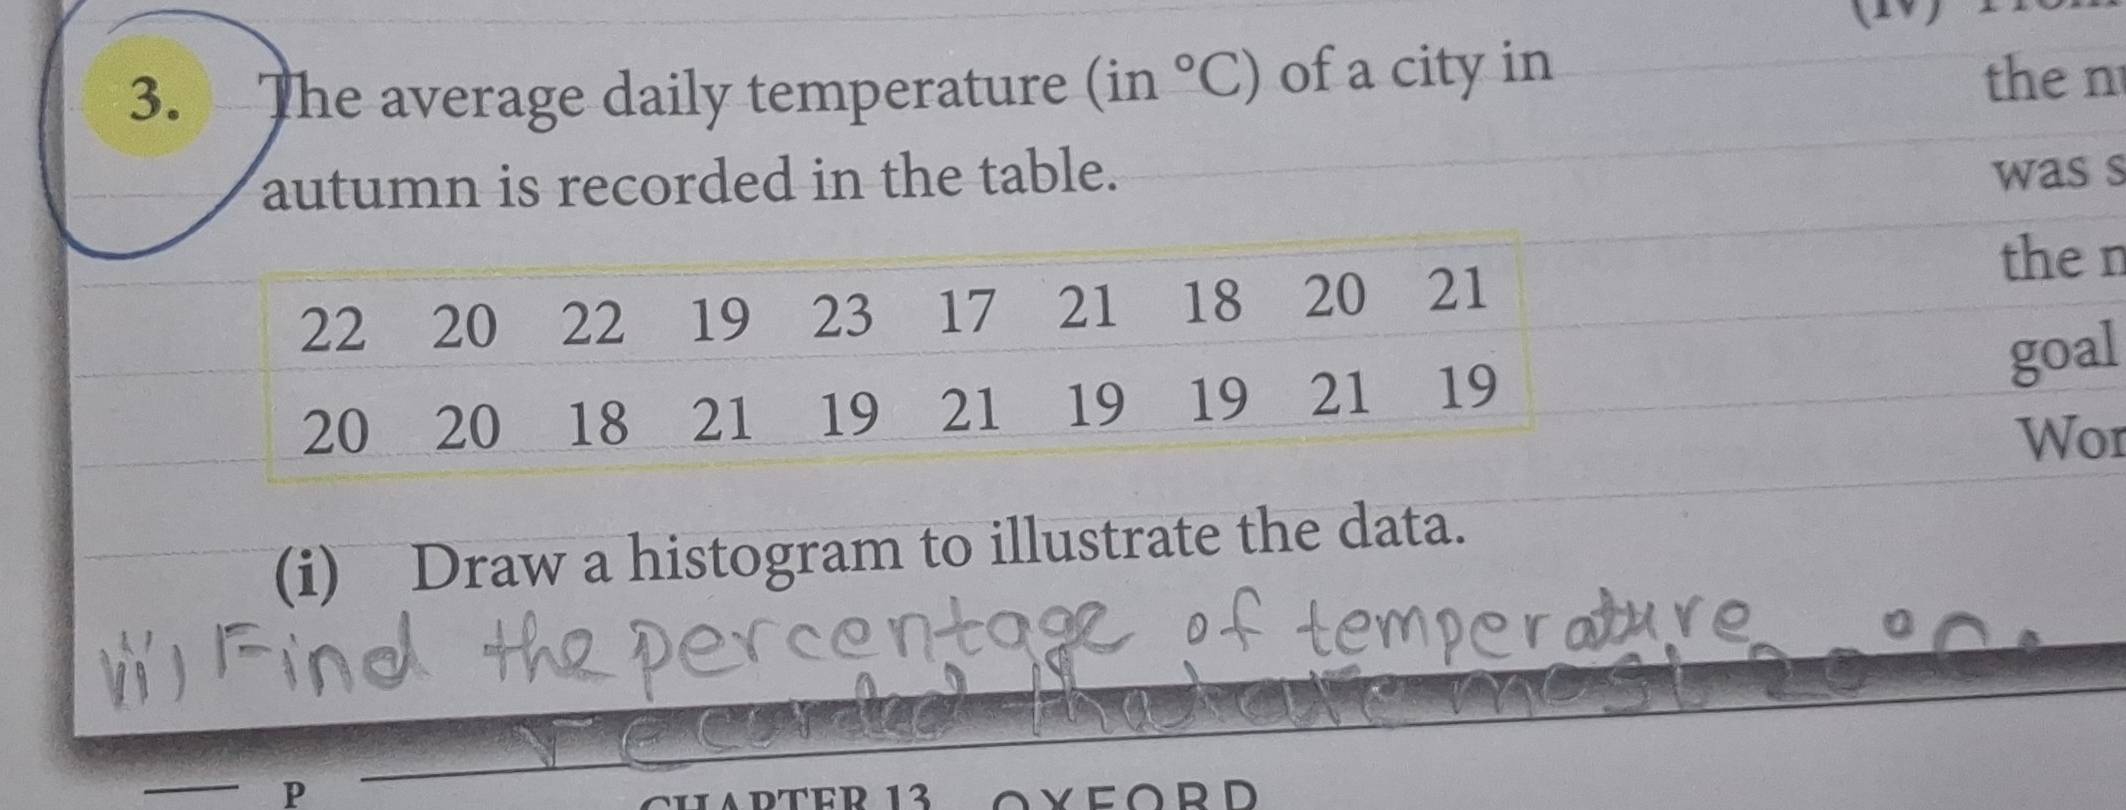 3. The average daily temperature (in °C) of a city in
autumn is recorded in the table.
22 20 22 19 23 17 21 18 20 21
20 20 18 21 19 21 19 19 21 19
(i) Draw a histogram to illustrate the data.
ii) Find the percentage of temperature
recorded that are most 20 °C.
P
CHAPTER 13 OXFORD
(iv)
the
was
the
goal